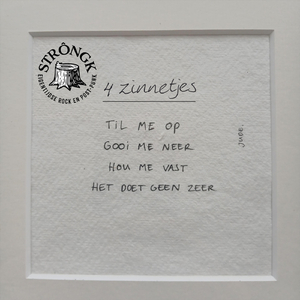 STRÔNGK
EIGENTIJDSE ROCK EN POST-PUNK
4 zinnetjes
TIL ME OP
GOOI ME NEER
HOU ME VAST
HET DOET GEEN ZEER
JUDE.